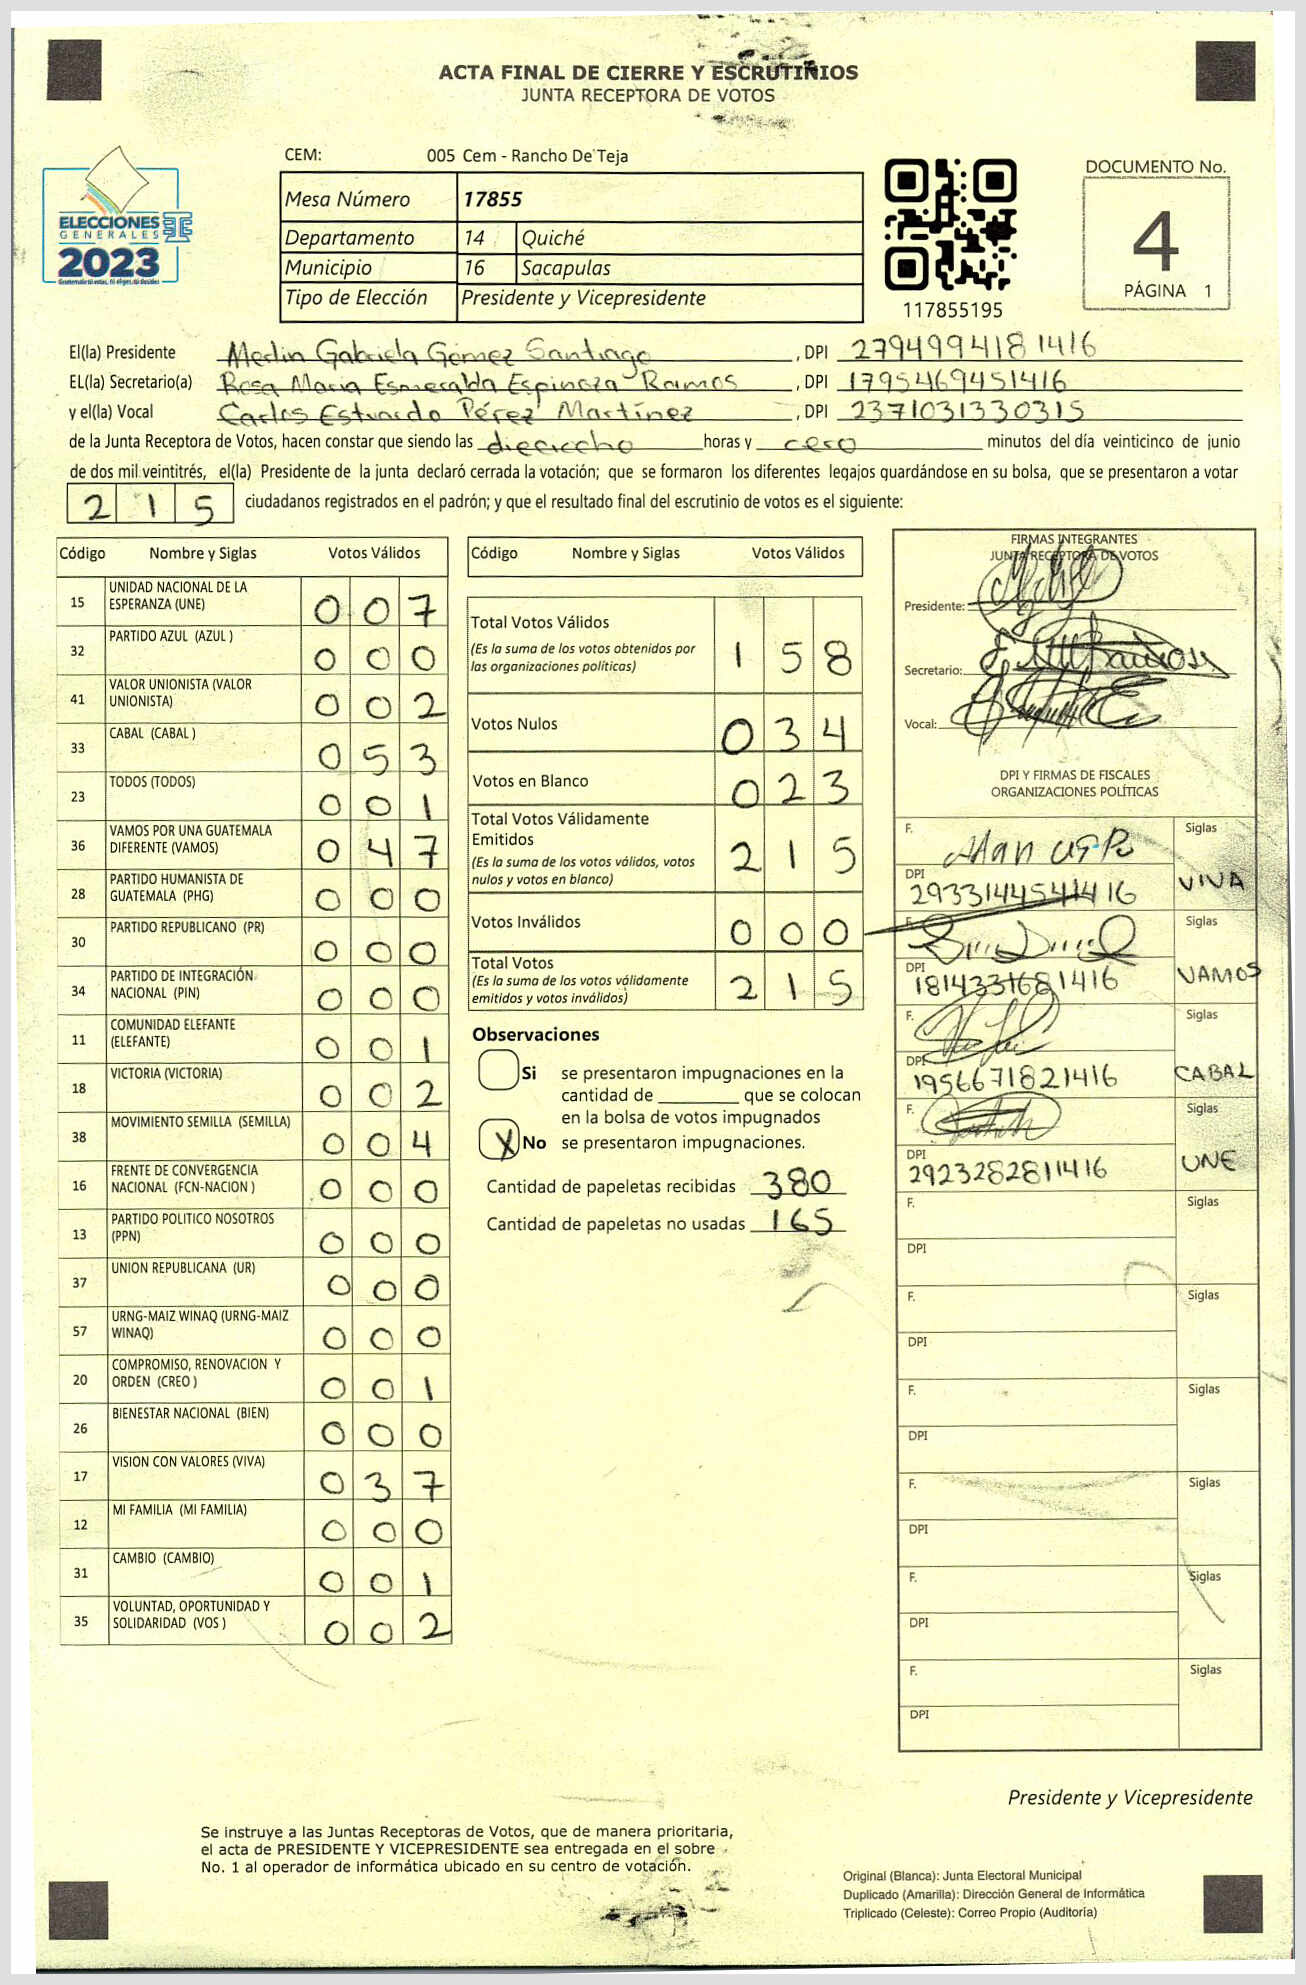 ACTA FINAL DE CIERRE Y ESCRUTINIOS
JUNTA RECEPTORA DE VOTOS
ELECCIONES
GENERALES
2023
CEM: 005 Cem - Rancho De Teja
Mesa Número 17855
Departamento 14 Quiché
Municipio 16 Sacapulas
Tipo de Elección Presidente y Vicepresidente
117855195
DOCUMENTO No.
4
PÁGINA 1
El(la) Presidente Merlin Gabriela Gómez Santiago, DPI 2794994181416
EL(la) Secretario(a) Rosa Maria Esmeralda Espinoza Ramos, DPI 1795469451416
y el(la) Vocal Carlos Estuardo Pérez Martínez, DPI 2371031330315
de la Junta Receptora de Votos, hacen constar que siendo las dieciocho horas y cero minutos del día veinticinco de junio
de dos mil veintitrés, el(la) Presidente de la junta declaró cerrada la votación; que se formaron los diferentes legajos guardándose en su bolsa, que se presentaron a votar
215 ciudadanos registrados en el padrón; y que el resultado final del escrutinio de votos es el siguiente:
Código Nombre y Siglas Votos Válidos
15 UNIDAD NACIONAL DE LA ESPERANZA (UNE) 007
32 PARTIDO AZUL (AZUL ) 000
41 VALOR UNIONISTA (VALOR UNIONISTA) 002
33 CABAL (CABAL ) 053
23 TODOS (TODOS) 001
36 VAMOS POR UNA GUATEMALA DIFERENTE (VAMOS) 047
28 PARTIDO HUMANISTA DE GUATEMALA (PHG) 000
30 PARTIDO REPUBLICANO (PR) 000
34 PARTIDO DE INTEGRACIÓN NACIONAL (PIN) 000
11 COMUNIDAD ELEFANTE (ELEFANTE) 001
18 VICTORIA (VICTORIA) 002
38 MOVIMIENTO SEMILLA (SEMILLA) 004
16 FRENTE DE CONVERGENCIA NACIONAL (FCN-NACION ) 000
13 PARTIDO POLITICO NOSOTROS (PPN) 000
37 UNION REPUBLICANA (UR) 000
57 URNG-MAIZ WINAQ (URNG-MAIZ WINAQ) 000
20 COMPROMISO, RENOVACION Y ORDEN (CREO ) 001
26 BIENESTAR NACIONAL (BIEN) 000
17 VISION CON VALORES (VIVA) 037
12 MI FAMILIA (MI FAMILIA) 000
31 CAMBIO (CAMBIO) 001
35 VOLUNTAD, OPORTUNIDAD Y SOLIDARIDAD (VOS ) 002
Código Nombre y Siglas Votos Válidos
Total Votos Válidos 158
(Es la suma de los votos obtenidos por
las organizaciones políticas)
Votos Nulos 034
Votos en Blanco 023
Total Votos Válidamente
Emitidos 215
(Es la suma de los votos válidos, votos
nulos y votos en blanco)
Votos Inválidos 000
Total Votos 215
(Es la suma de los votos válidamente
emitidos y votos inválidos)
Observaciones
Si se presentaron impugnaciones en la
cantidad de ________ que se colocan
en la bolsa de votos impugnados
X No se presentaron impugnaciones.
Cantidad de papeletas recibidas 380
Cantidad de papeletas no usadas 165
FIRMAS INTEGRANTES
JUNTA RECEPTORA DE VOTOS
Presidente:
Secretario:
Vocal:
DPI Y FIRMAS DE FISCALES
ORGANIZACIONES POLÍTICAS
F. Siglas
DPI 2933144541416 VIVA
F. Siglas
DPI 1814331681416 VAMOS
F. Siglas
DPI 1956671821416 CABAL
F. Siglas
DPI 2923282811416 UNE
F. Siglas
DPI
F. Siglas
DPI
F. Siglas
DPI
F. Siglas
DPI
F. Siglas
DPI
F. Siglas
DPI
Presidente y Vicepresidente
Se instruye a las Juntas Receptoras de Votos, que de manera prioritaria,
el acta de PRESIDENTE Y VICEPRESIDENTE sea entregada en el sobre
No. 1 al operador de informática ubicado en su centro de votación.
Original (Blanca): Junta Electoral Municipal
Duplicado (Amarilla): Dirección General de Informática
Triplicado (Celeste): Correo Propio (Auditoría)